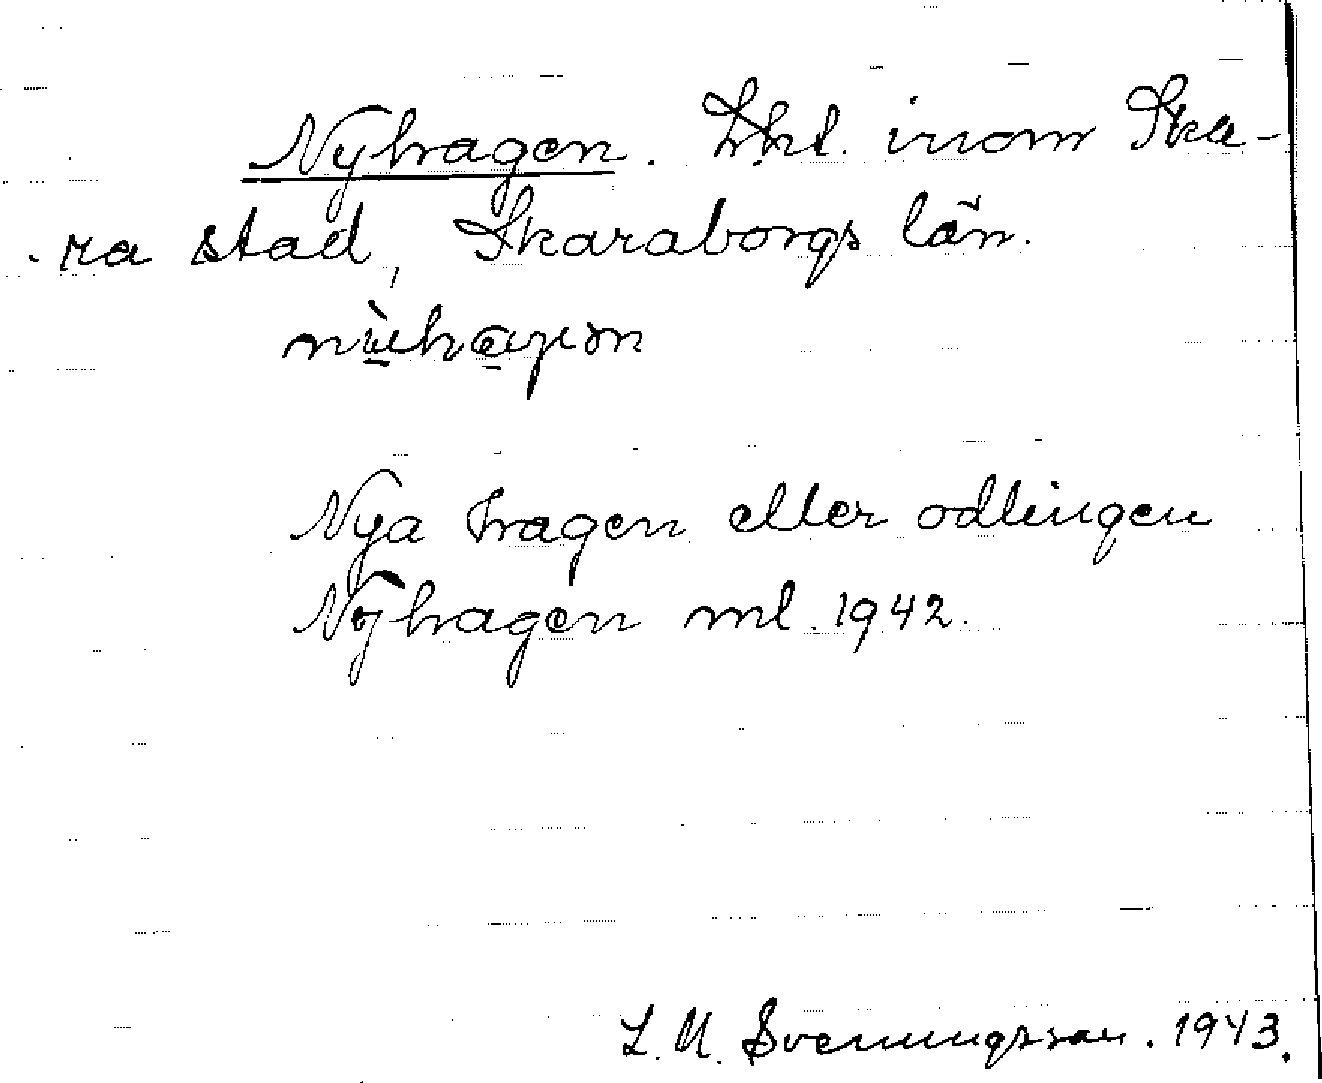 Nyhagen. Lht. inom Ska-
ra stad, Skaraborgs län.
Nya hagen eller odlingen
Nyhagen ml. 1942.
L. M. Svenungsson. 1943.